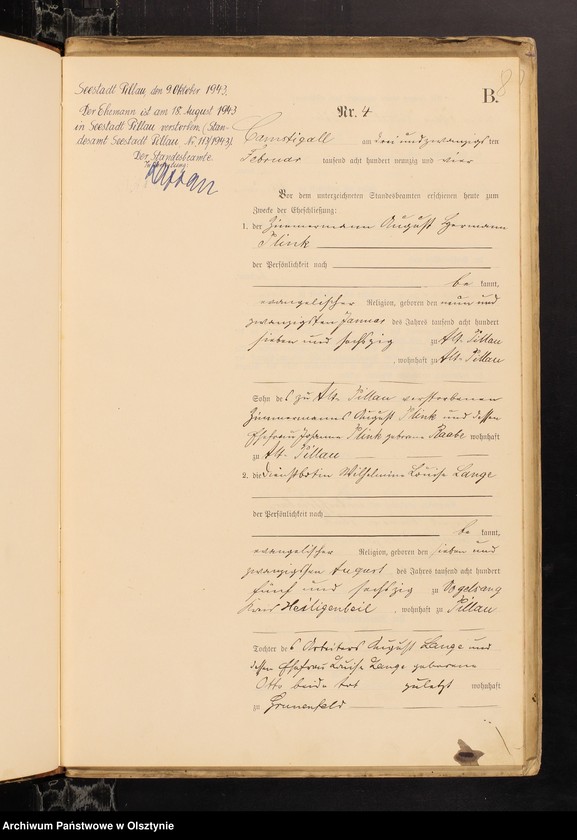 Seestadt Pillau, den 9 Oktober 1943.
Der Ehemann ist am 18. August 1943
in Seestadt Pillau verstorben. (Stan-
desamt Seestadt Pillau Nr. 110/1943).
Der Standesbeamte
B.
8
Nr. 4
Camstigall am drei und zwanzigsten
Februar tausend acht hundert neunzig und vier
Vor dem unterzeichneten Standesbeamten erschienen heute zum
Zwecke der Eheschließung:
1. der Zimmermann August Hermann
Plink
der Persönlichkeit nach
be kannt,
evangelischer Religion, geboren den neun und
zwanzigsten Januar des Jahres tausend acht hundert
sieben und sechszig zu Alt Pillau
, wohnhaft zu Alt Pillau
Sohn des zu Alt Pillau verstorbenen
Zimmermanns August Plink und dessen
Ehefrau Johanna Plink geborene Raabe wohnhaft
zu Alt Pillau
2. die Dienstbotin Wilhelmine Louise Lange
der Persönlichkeit nach
be kannt,
evangelischer Religion, geboren den sieben und
zwanzigsten August des Jahres tausend acht hundert
fünf und sechszig zu Vogelsang
Kreis Heiligenbeil , wohnhaft zu Pillau
Tochter des Arbeiters August Lange und
dessen Ehefrau Louise Lange geborene
Otto beide tot zuletzt wohnhaft
zu Grunenfeld
Archiwum Państwowe w Olsztynie